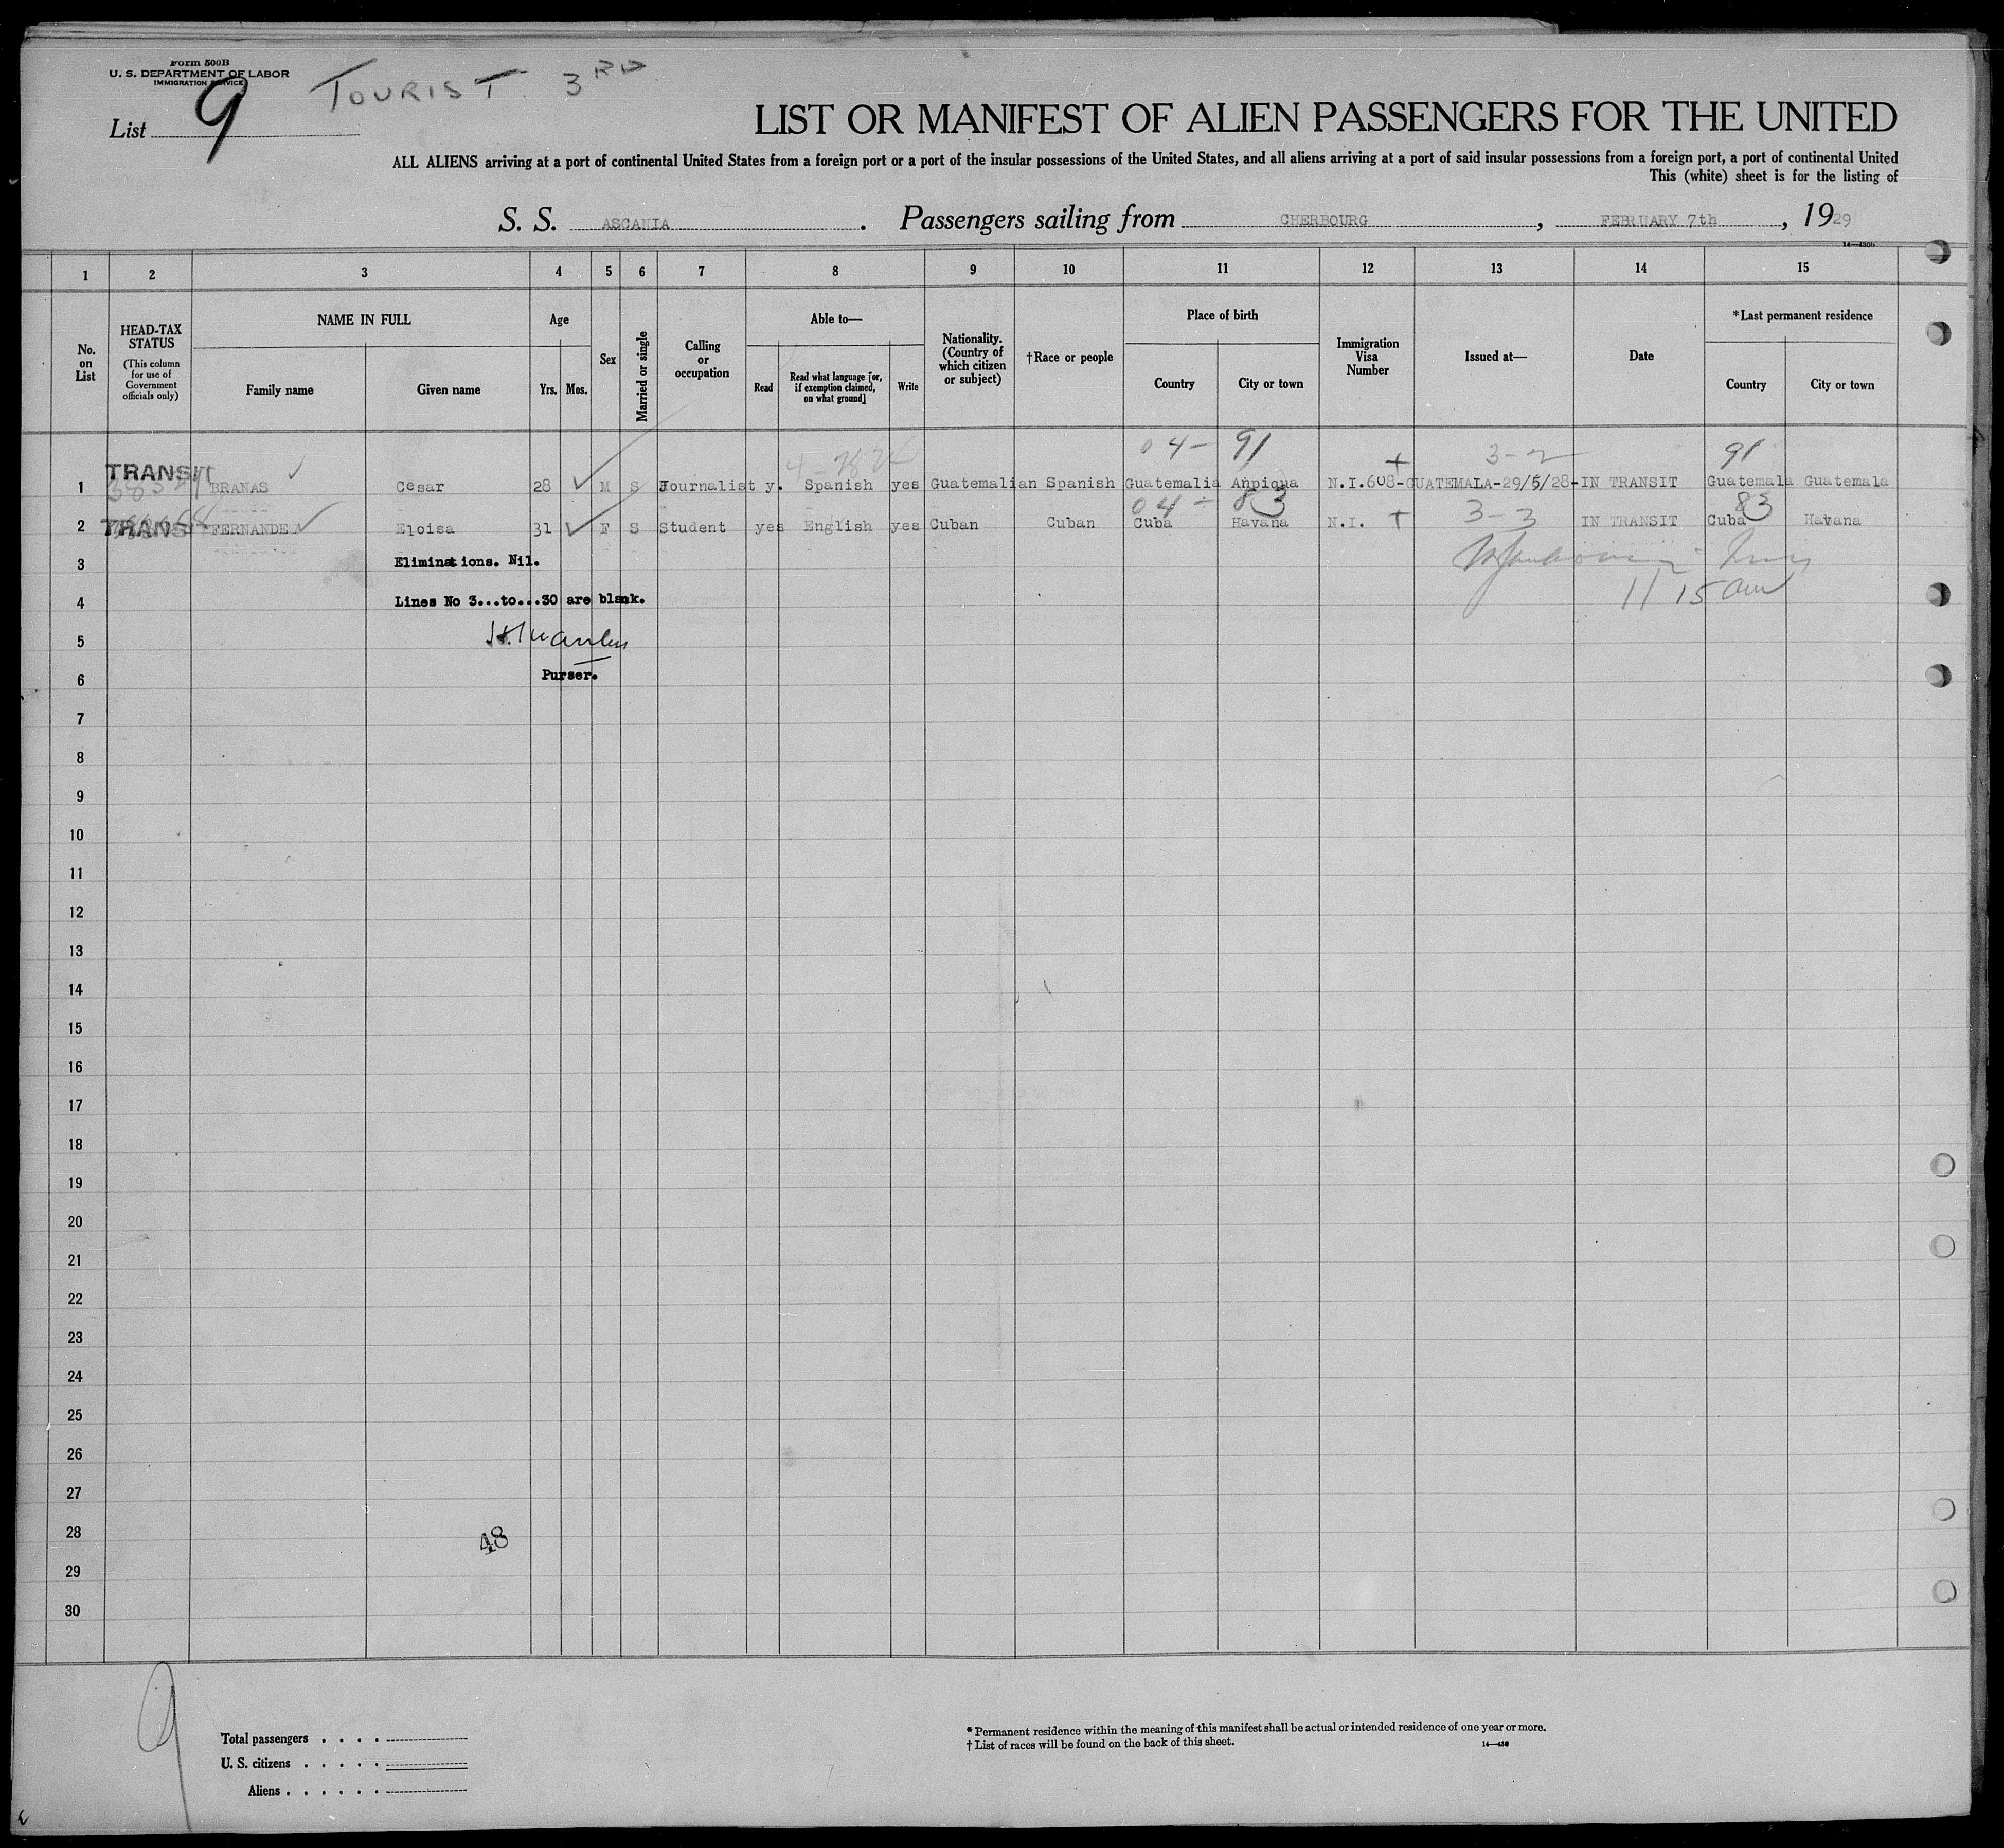 Form 500B
U. S. DEPARTMENT OF LABOR
IMMIGRATION SERVICE
TOURIST 3RD
List 9
LIST OR MANIFEST OF ALIEN PASSENGERS FOR THE UNITED
ALL ALIENS arriving at a port of continental United States from a foreign port or a port of the insular possessions of the United States, and all aliens arriving at a port of said insular possessions from a foreign port, a port of continental United
This (white) sheet is for the listing of
S. S. ASCANIA. Passengers sailing from CHERBOURG, FEBRUARY 7th, 1929
14—430b
1 2 3 4 5 6 7 8 9 10 11 12 13 14 15
No. on List
HEAD-TAX STATUS
(This column for use of Government officials only)
NAME IN FULL
Family name
Given name
Age
Yrs.
Mos.
Sex
Married or single
Calling or occupation
Able to—
Read
Read what language [or, if exemption claimed, on what ground]
Write
Nationality. (Country of which citizen or subject)
†Race or people
Place of birth
Country
City or town
Immigration Visa Number
Issued at—
Date
*Last permanent residence
Country
City or town
04- 91 3-2 91
1 TRANSIT BRANAS Cesar 28 M S Journalist y. Spanish yes Guatemalian Spanish Guatemalia Anpiqua N.I.608-GUATEMALA-29/5/28-IN TRANSIT Guatemala Guatemala
04- 83 3-3 83
2 TRANS FERNANDE Eloisa 31 F S Student yes English yes Cuban Cuban Cuba Havana N.I. IN TRANSIT Cuba Havana
3 Eliminations. Nil.
4 Lines No 3...to...30 are blank.
11 15 am
5
6 Purser.
7
8
9
10
11
12
13
14
15
16
17
18
19
20
21
22
23
24
25
26
27
28
48
29
30
9
Total passengers . . . .
U. S. citizens . . . . .
Aliens . . . . . .
* Permanent residence within the meaning of this manifest shall be actual or intended residence of one year or more.
† List of races will be found on the back of this sheet.
14—430